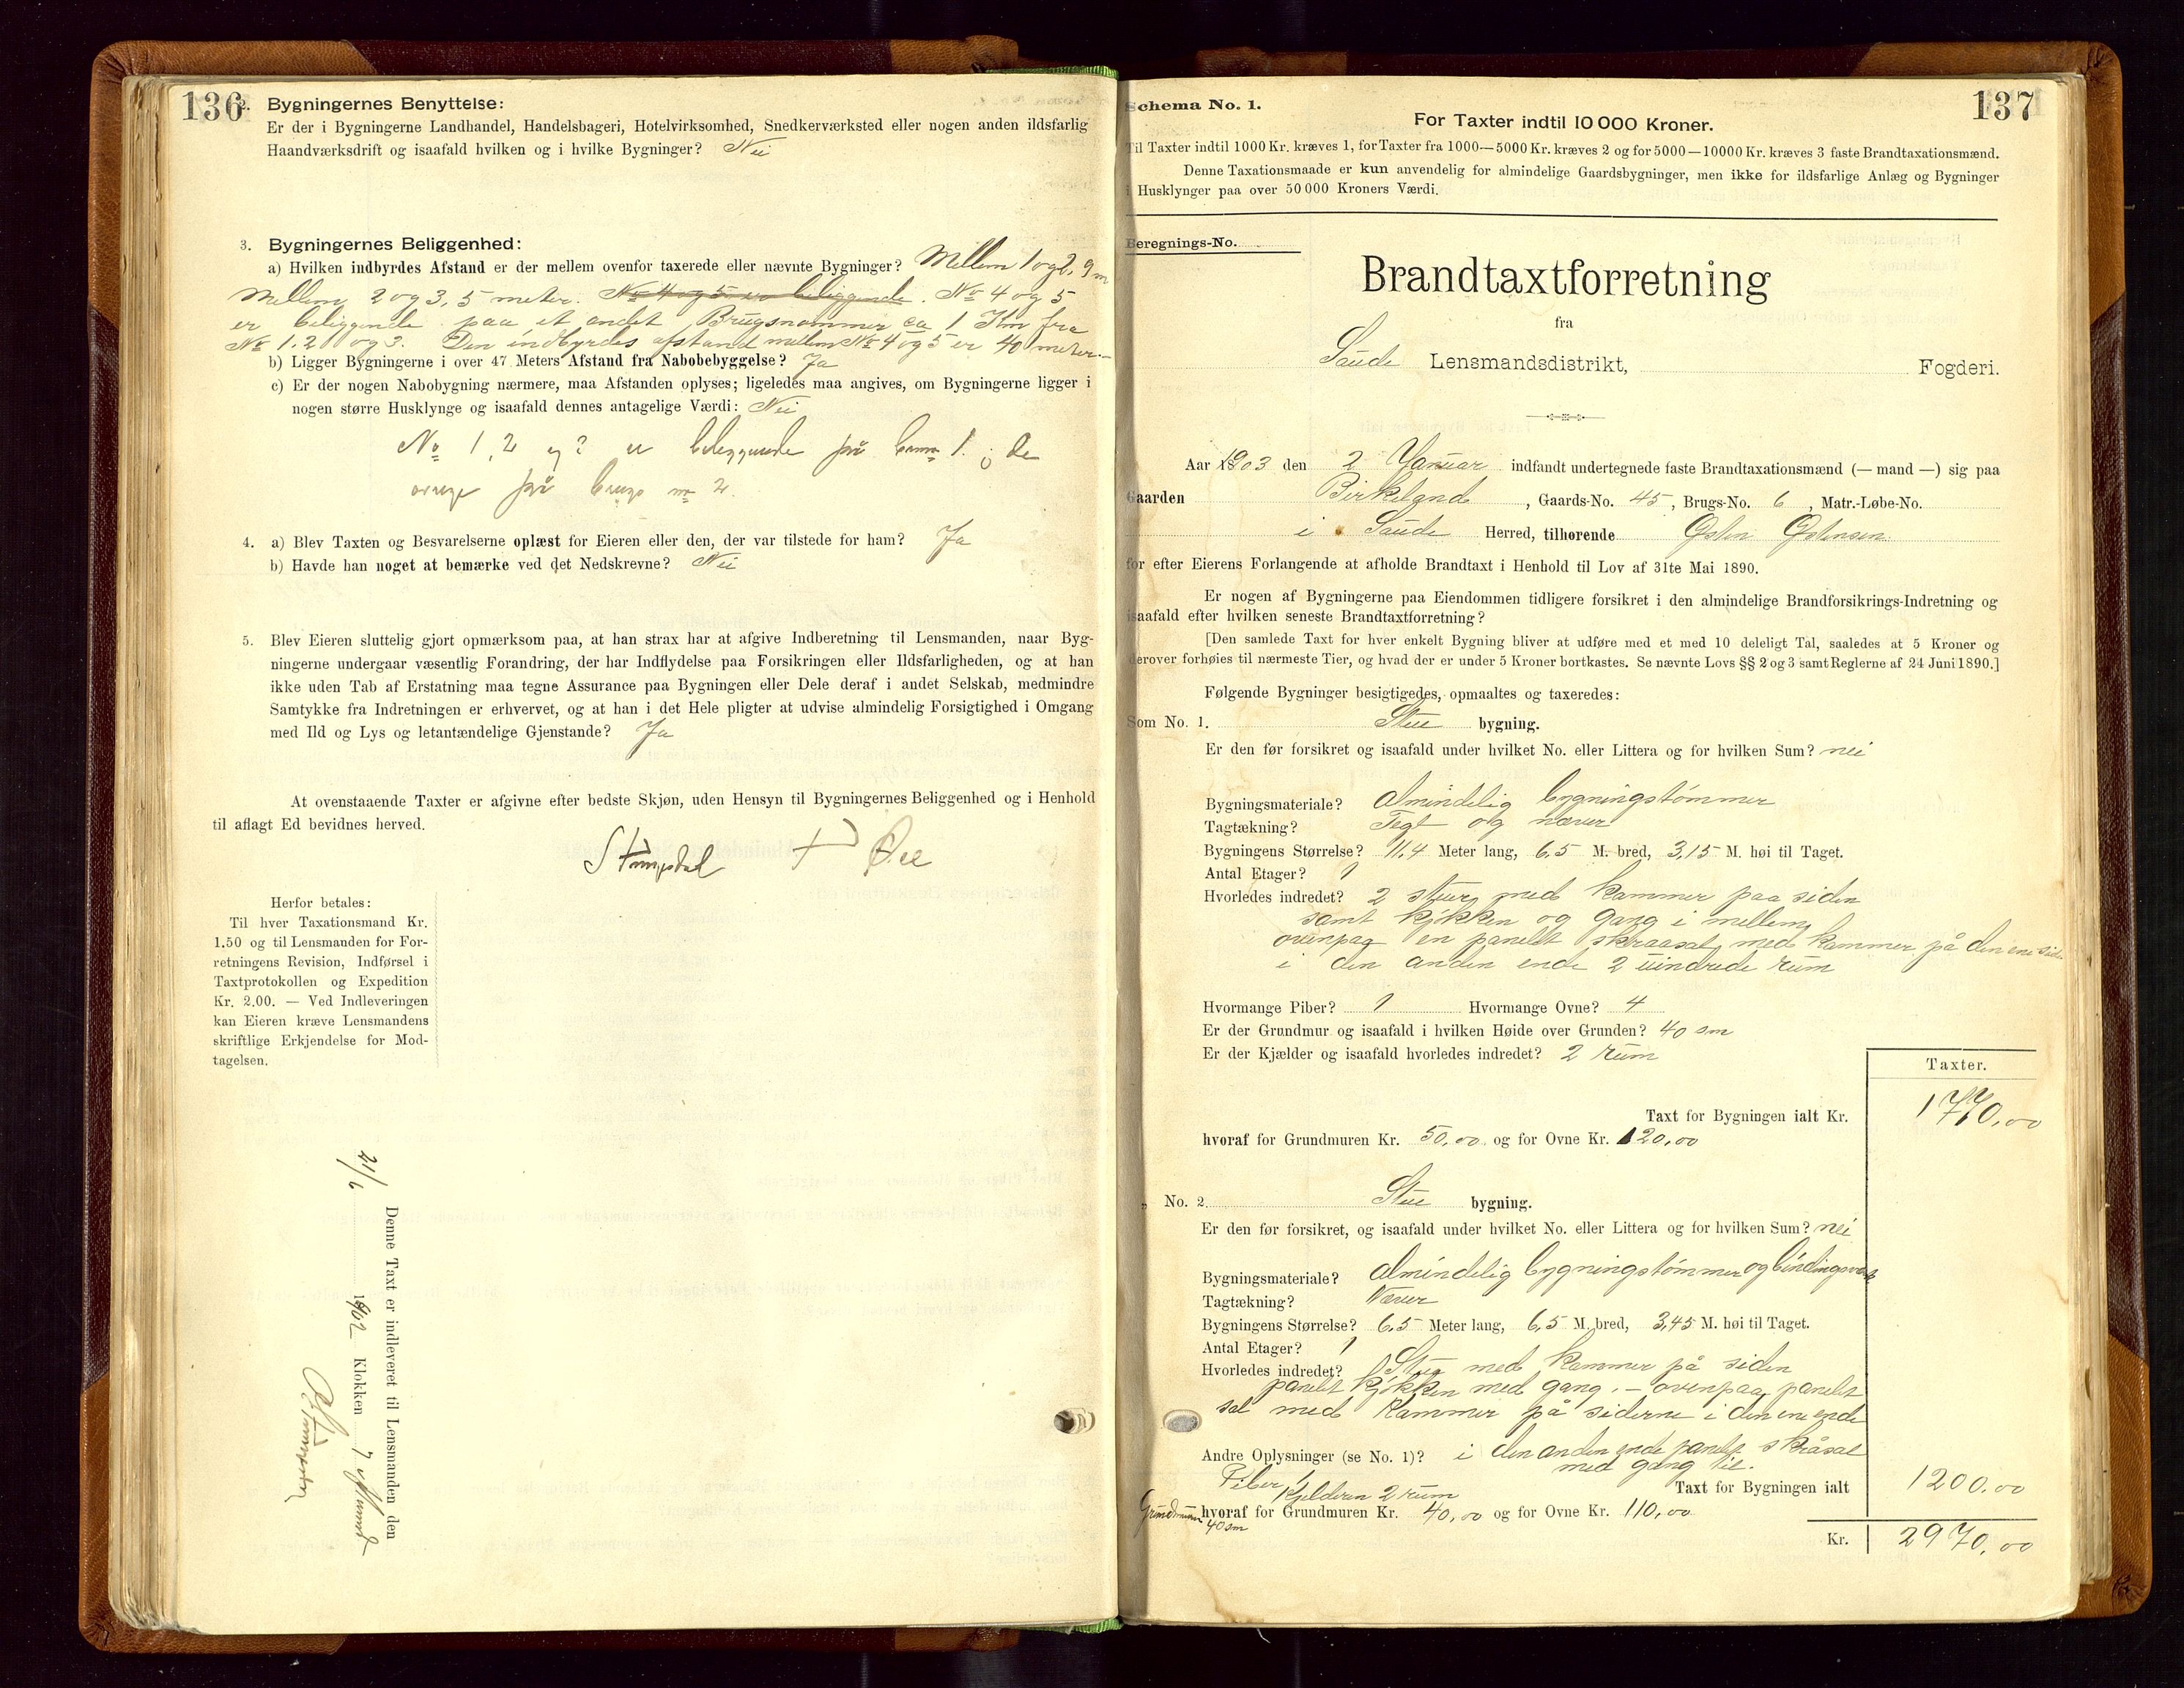 136
2. Bygningernes Benyttelse:
Er der i Bygningerne Landhandel, Handelsbageri, Hotelvirksomhed, Snedkerværksted eller nogen anden ildsfarlig
Haandværksdrift og isaafald hvilken og i hvilke Bygninger? Nei
3. Bygningernes Beliggenhed:
a) Hvilken indbyrdes Afstand er der mellem ovenfor taxerede eller nævnte Bygninger? Mellem 1 og 2, 9 m
Mellem 2 og 3, 5 meter. No 4 og 5 er beliggende. No 4 og 5
er beliggende paa et andet Brugsnommer ca 1 Km fra
No 1, 2 og 3. Den indbyrdes afstand mellem No 4 og 5 er 40 meter.-
b) Ligger Bygningerne i over 47 Meters Afstand fra Nabobebyggelse? Ja
c) Er der nogen Nabobygning nærmere, maa Afstanden oplyses; ligeledes maa angives, om Bygningerne ligger i
nogen større Husklynge og isaafald dennes antagelige Værdi: Nei
No 1, 2 og 3 er beliggende på 1. ; de
øvrige på brugs no 2.
4. a) Blev Taxten og Besvarelserne oplæst for Eieren eller den, der var tilstede for ham? Ja
b) Havde han noget at bemærke ved det Nedskrevne? Nei
5. Blev Eieren sluttelig gjort opmærksom paa, at han strax har at afgive Indberetning til Lensmanden, naar Byg-
ningerne undergaar væsentlig Forandring, der har Indflydelse paa Forsikringen eller Ildsfarligheden, og at han
ikke uden Tab af Erstatning maa tegne Assurance paa Bygningen eller Dele deraf i andet Selskab, medmindre
Samtykke fra Indretningen er erhvervet, og at han i det Hele pligter at udvise almindelig Forsigtighed i Omgang
med Ild og Lys og letantændelige Gjenstande? Ja
At ovenstaaende Taxter er afgivne efter bedste Skjøn, uden Hensyn til Bygningernes Beliggenhed og i Henhold
til aflagt Ed bevidnes herved.
Herfor betales:
Til hver Taxationsmand Kr.
1.50 og til Lensmanden for For-
retningens Revision, Indførsel i
Taxtprotokollen og Expedition
Kr. 2.00. — Ved Indleveringen
kan Eieren kræve Lensmandens
skriftlige Erkjendelse for Mod-
tagelsen.
Denne Taxt er indleveret til Lensmanden den
21/6 1902 Klokken 7
Schema No. 1.
137
For Taxter indtil 10 000 Kroner.
Til Taxter indtil 1000 Kr. kræves 1, for Taxter fra 1000—5000 Kr. kræves 2 og for 5000—10000 Kr. kræves 3 faste Brandtaxationsmænd.
Denne Taxationsmaade er kun anvendelig for almindelige Gaardsbygninger, men ikke for ildsfarlige Anlæg og Bygninger
i Husklynger paa over 50 000 Kroners Værdi.
Beregnings-No.
Brandtaxtforretning
fra
Saude Lensmandsdistrikt, Fogderi.
Aar 1903 den 2 Januar indfandt undertegnede faste Brandtaxationsmænd (— mand —) sig paa
Gaarden Birkeland, Gaards-No. 45, Brugs-No. 6, Matr.-Løbe-No.
i Saude Herred, tilhørende Østen Østensen
for efter Eierens Forlangende at afholde Brandtaxt i Henhold til Lov af 31te Mai 1890.
Er nogen af Bygningerne paa Eiendommen tidligere forsikret i den almindelige Brandforsikrings-Indretning og
isaafald efter hvilken seneste Brandtaxtforretning?
[Den samlede Taxt for hver enkelt Bygning bliver at udføre med et med 10 deleligt Tal, saaledes at 5 Kroner og
derover forhøies til nærmeste Tier, og hvad der er under 5 Kroner bortkastes. Se nævnte Lovs §§ 2 og 3 samt Reglerne af 24 Juni 1890.]
Følgende Bygninger besigtigedes, opmaaltes og taxeredes:
Som No. 1. Stue bygning.
Er den før forsikret og isaafald under hvilket No. eller Littera og for hvilken Sum? nei
Bygningsmateriale? Almindelig bygningstømmer
Tagtækning? Tegl og næver
Bygningens Størrelse? 11,4 Meter lang, 6,5 M. bred, 3,15 M. høi til Taget.
Antal Etager? 1
Hvorledes indredet? 2 stuer med kammer paa siden
samt kjøkken og gang i mellem,
ovenpaa en panelt skraasal med kammer på den ene side
i den anden ende 2 uindrede rum
Hvormange Piber? 1 Hvormange Ovne? 4
Er der Grundmur og isaafald i hvilken Høide over Grunden? 40 sm
Er der Kjælder og isaafald hvorledes indredet? 2 rum
Taxter.
Taxt for Bygningen ialt Kr. 1770,00
hvoraf for Grundmuren Kr. 50,00 og for Ovne Kr. 120,00
„ No. 2. Stue bygning.
Er den før forsikret, og isaafald under hvilket No. eller Littera og for hvilken Sum? nei
Bygningsmateriale? Almindelig bygningstømmer og bindingsverk
Tagtækning? Næver
Bygningens Størrelse? 6,5 Meter lang, 6,5 M. bred, 3,45 M. høi til Taget.
Antal Etager? 1
Hvorledes indredet? 1 Stue med kammer på siden
panelt kjøkken med gang. – ovenpaa panelt
sal med kammer på siderne i den ene ende
Andre Oplysninger (se No. 1)? i den anden ende panelt skråsal
med gang til.
Piber 1
Kjelderen 2 rum
Taxt for Bygningen ialt 1200.00
Grundmuren 40 sm
hvoraf for Grundmuren Kr. 40,00 og for Ovne Kr. 110,00
Kr. 2970,00